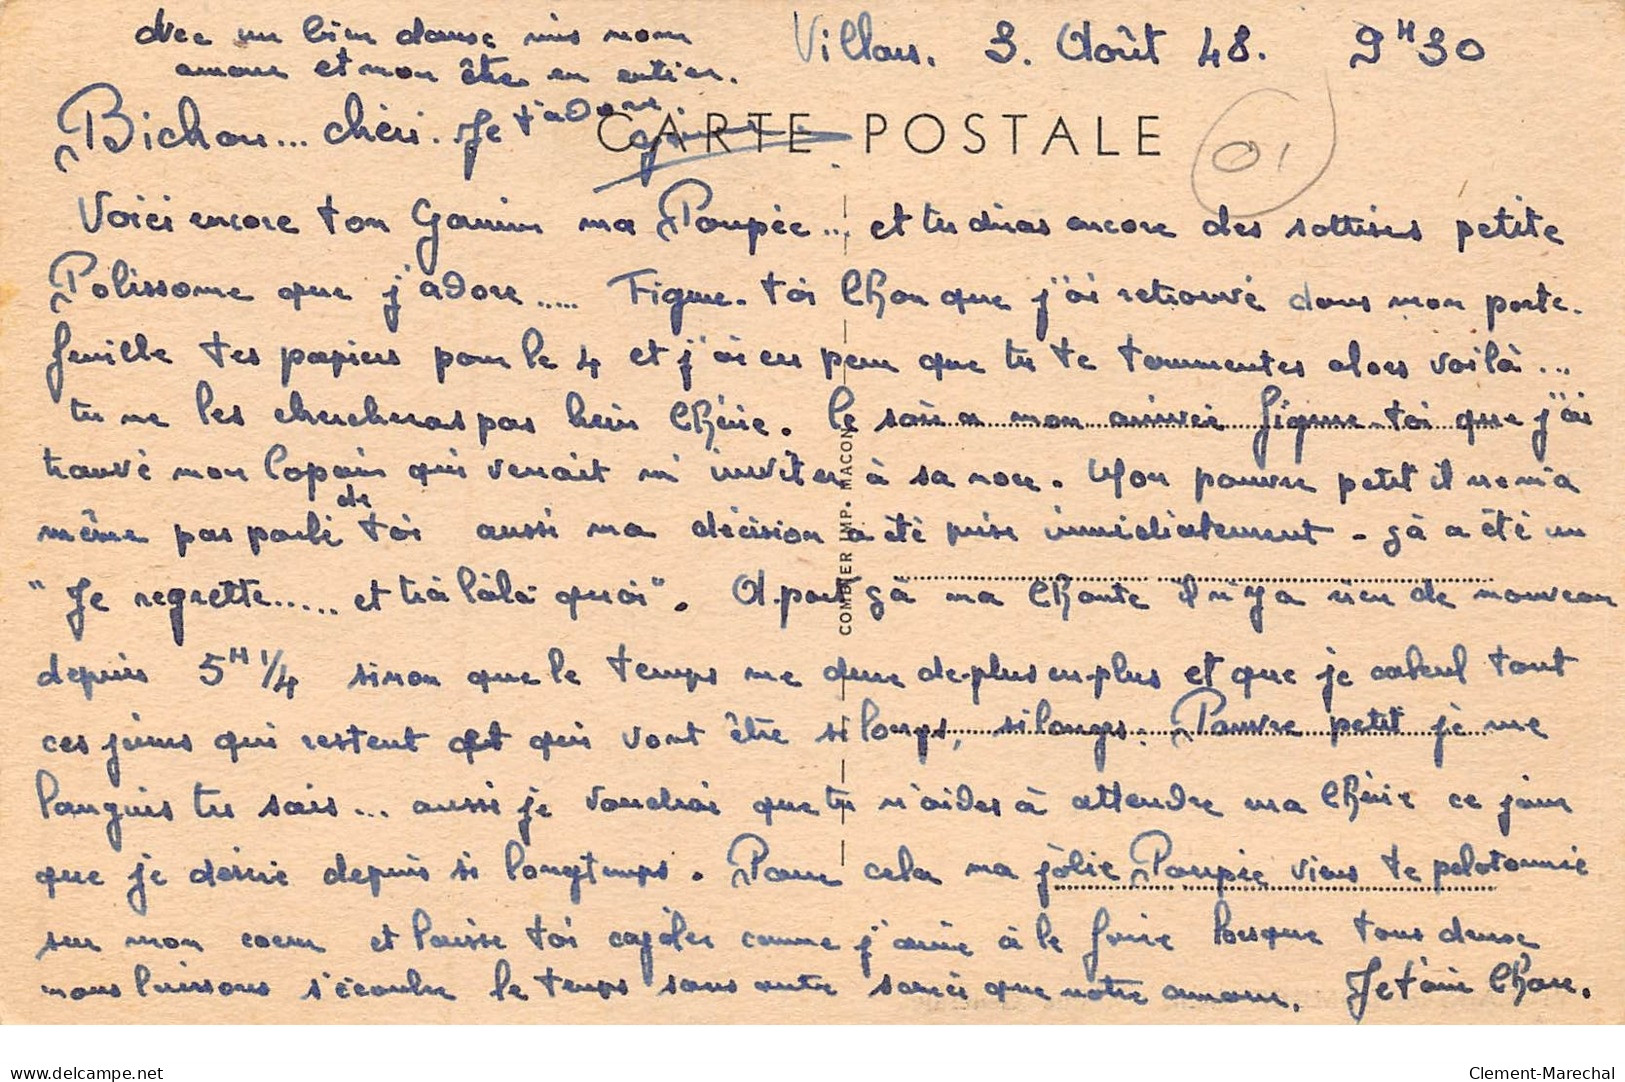 Villars. 3. Août 48. 9H30
avec un bien dans mis mon
amour et mon être en entier.
Bichou... chéri. Je t'adore
CARTE POSTALE
01
Voici encore ton Gamin ma Poupée... et tu diras encore des sottises petite
Polissonne que j'adore..... Figure-toi Chou que j'ai retrouvé dans mon porte-
feuille tes papiers pour le 4 et j'ai eu peur que tu te tourmentes alors voilà...
tu ne les chercheras pas hein Chérie. Le soir a mon arrivée figure-toi que j'ai
trouvé mon copain qui venait m'inviter à sa noce. Mon pauvre petit il ne m'a
même pas parlé de toi aussi ma décision a été prise immédiatement - çà a été un
"Je regrette..... et trà làlà quoi". A part çà ma Choute il n'y a rien de nouveau
depuis 5H 1/4 sinon que le temps me dure de plus en plus et que je calcul tout
ces jours qui restent et qui vont être si longs, si longs. Pauvre petit je me
languis tu sais... aussi je voudrai que tu m'aides à attendre ma Chérie ce jour
que je désire depuis si longtemps. Pour cela ma jolie Poupée viens te pelotonnée
sur mon coeur et laisse toi cajoler comme j'aime à le faire lorsque tous deux
nous laissons s'écouler le temps sans autre souci que notre amour. Je t'aime Chou.
COMBIER IMP. MACON
Clement-Marechal
www.delcampe.net